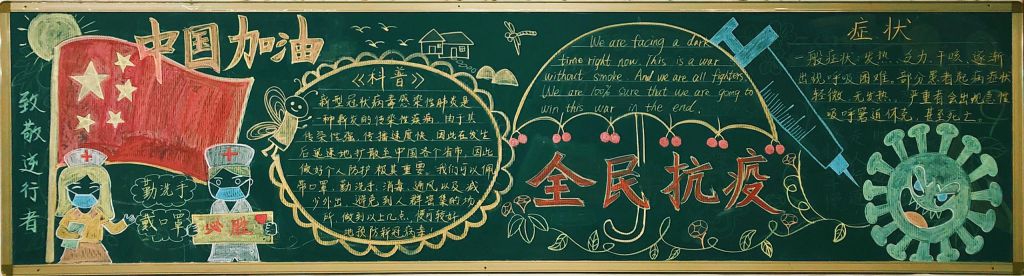 致敬逆行者
中国加油
勤洗手
戴口罩
必胜
《科普》
新型冠状病毒感染性肺炎是
一种新发的传染性疾病,由于其
传染性强,传播速度快,因此在发生
后迅速地扩散至中国各个省市,因此
做好个人防护极其重要。我们可以佩
带口罩,勤洗手,消毒,通风以及减
少外出,避免到人群密集的场
所,做到以上几点,便可较好
地预防新冠病毒!
We are facing a dark
time right now. This is a war
without smoke. And we are all fighters.
We are 100% sure that we are going to
win this war in the end.
全民抗疫
症状
一般症状:发热、乏力、干咳、逐渐
出现呼吸困难,部分患者起病症状
轻微,无发热,严重者会出现急性
呼吸窘迫休克,甚至死亡。